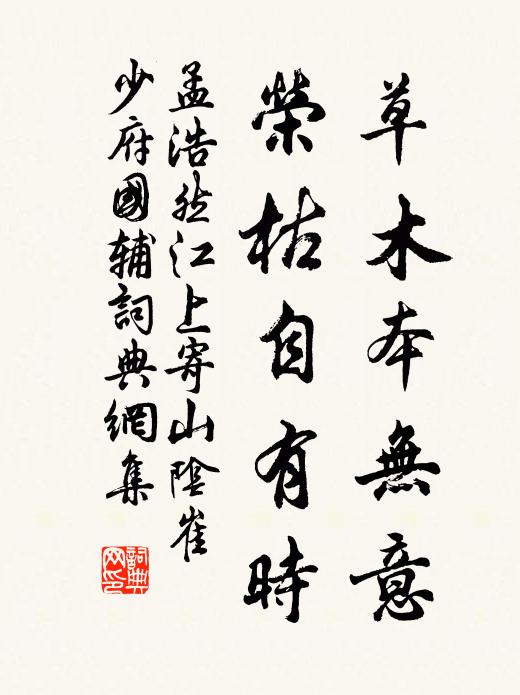 草木本無意
榮枯自有時
孟浩然江上寄山陰崔
少府國輔詞典網集
詞典
网印